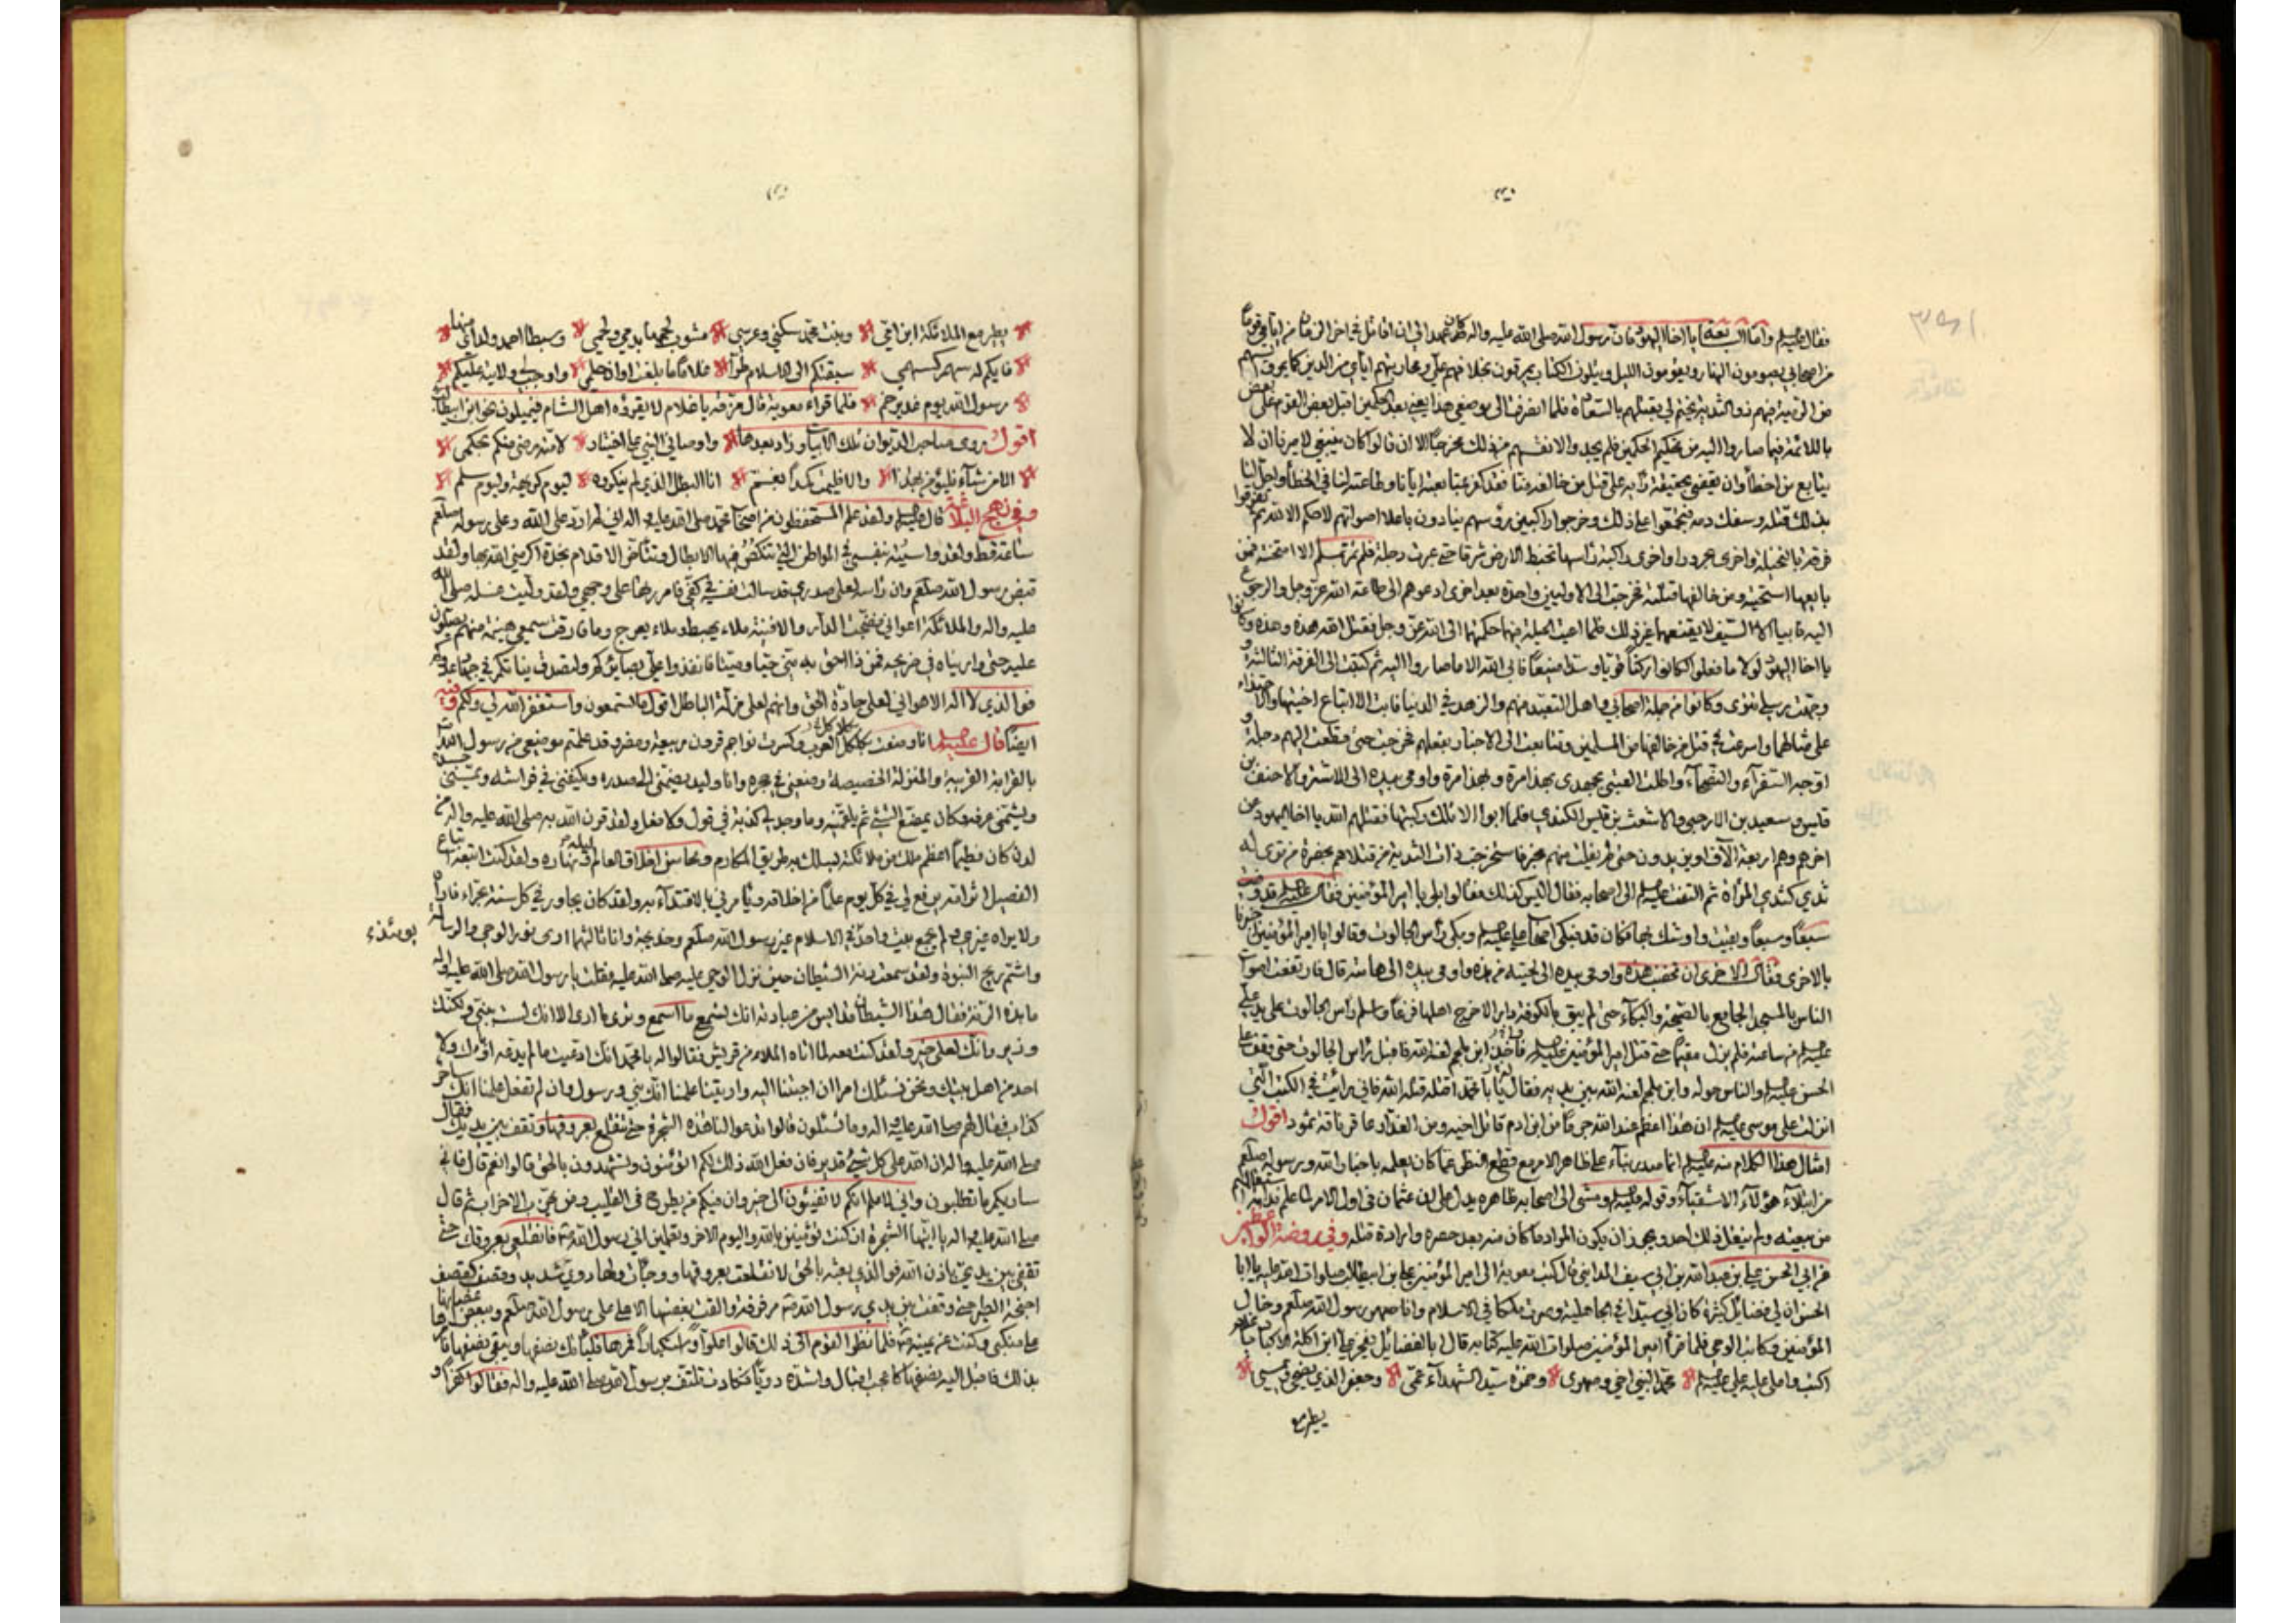 فقال عليه السلم واما الرابعة يا اخا اليهود فان رسول الله صلى الله عليه واله كان عهد الي ان اقاتل في اخر الزمان من ايامي قوما
من اصحابي يصومون النهار ويقومون الليل ويتلون الكتاب يمرقون بخلافهم علي ومحاربتهم اياي من الدين كما يمرق السهم
من الرمية فيهم ذو الثدية يختم لي بقتلهم بالسعادة فلما انصرفت الى موضعي هذا يعني بعد الحكمين اقبل بعض القوم على بعض
باللائمة فيما صاروا اليه من تحكيم الحكمين فلم يجدوا لانفسهم من ذلك مخرجا الا ان قالوا كان ينبغي لاميرنا ان لا
يتابع من اخطأ وان يقضي بحقيقة رأيه على قتل من خالفه منا فقد كفر بمتابعته ايانا وطاعته لنا في الخطأ واحل لنا
بذلك قتله وسفك دمه فتجمعوا على ذلك وخرجوا راكبين رؤسهم ينادون باعلا اصواتهم لا حكم الا لله ثم تفرقوا
فرقة بالنخيلة واخرى بحرورا واخرى راكبة رأسها تخبط الارض شرقا حتى عبرت دجلة فلم تمر بمسلم الا امتحنته فمن
بايعها استحيته ومن خالفها قتلته فخرجت الى الاوليين واحدة بعد اخرى ادعوهم الى طاعة الله عز وجل والرجوع
اليه فابيا الا السيف لا يقنعهما غير ذلك فلما اعيت الحيلة فيهما حكمتهما الى الله عز وجل فقتل الله هذه وهذه وكانوا
يا اخا اليهود لولا ما فعلوا لكانوا ركنا قويا وسدا منيعا فابى الله الا ما صاروا اليه ثم كتبت الى الفرقة الثالثة
ووجهت رسلي تترى وكانوا من جلة اصحابي واهل التعبد منهم والزهد في الدنيا فابت الا اتباع اختيها والاحتذاء
على مثالهما واسرعت في قتل من خالفها من المسلمين وتتابعت الى الاخبار بفعلهم فخرجت حتى قطعت اليهم دجلة
اوجه السفراء والنصحاء واطلب العتبى بجهدي بهذا مرة وبهذا مرة واومى بيده الى الاشتر والاحنف بن
قيس وسعيد بن الارحبي والاشعث بن قيس الكندي فلما ابوا الا تلك ركبتها فقتلهم الله يا اخا اليهود عن
اخرهم وهم اربعة الآف او يزيدون حتى لم يفلت منهم مخبر فاستخرجت ذا الثدية من قتلاهم بحضرة من ترى له
ثدي كثدي المرأة ثم التفت عليه السلم الى اصحابه فقال اليس كذلك فقالوا بلى يا امير المؤمنين فقال عليه السلم قد وفيت
سبعا وسبعا وبقيت واوشك بها فكان قد فبكى اصحاب علي عليه السلم وبكى رأس الجالوت وقالوا يا امير المؤمنين اخبرنا
بالاخرى فقال الاخرى ان تخضب هذه واومى بيده الى لحيته من هذه واومى بيده الى هامته قال فارتفعت اصوات
الناس بالمسجد الجامع بالضجة والبكاء حتى لم يبق بالكوفة دار الا خرج اهلها فزعا واسلم رأس الجالوت على يد علي
عليه السلم من ساعته فلم يزل مقيما حتى قتل امير المؤمنين عليه السلم فاخذ ابن ملجم لعنه الله فاقبل رأس الجالوت حتى وقف على
الحسن عليه السلم والناس حوله وابن ملجم لعنه الله بين يديه فقال يا ابا محمد اقتله قتله الله فاني رأيت في الكتب التي
انزلت على موسى عليه السلم ان هذا اعظم عند الله جرما من ابن ادم قاتل اخيه ومن القدار عاقر ناقة ثمود اقول
امثال هذا الكلام منه عليه السلم انما صدر بناء على ظاهر الامر مع قطع النظر عما كان يعلمه باخبار الله ورسوله صلعم
من ابتلاء هؤلاء الاشقياء وقوله عليه السلم ومشى الى اصحابه ظاهره يدل على ان عثمان في اول الامر لما علم ندامة
من بيعته ولم يفعل ذلك احد ويجوز ان يكون المراد ما كان منه بعد حصره وارادة قتله وفي روضة الواعظين
عن ابي الحسن علي بن عبد الله بن ابي سيف المدايني قال كتب معوية الى امير المؤمنين علي بن ابيطالب صلوات الله عليه يا ابا
الحسن ان لي فضائل كثيرة كان ابي سيدا في الجاهلية وصرت ملكا في الاسلام وانا صهر رسول الله صلعم وخال
المؤمنين وكاتب الوحي فلما قرأ امير المؤمنين صلوات الله عليه كتابه قال ابا لفضائل يفخر علي ابن اكلة الاكباد يا غلام
اكتب واملى عليه علي عليه السلم محمد النبي اخي وصهري وحمزة سيد الشهداء عمي وجعفر الذي يضحي ويمسي
يطير مع
يطير مع الملائكة ابن امي وبنت محمد سكني وعرسي مشوب لحمها بدمي ولحمي وسبطا احمد ولداي منها
فايكم له سهم كسهمي سبقتكم الى الاسلام طرا غلاما ما بلغت اوان حلمي واوجب لي ولايته عليكم
رسول الله يوم غدير خم فلما قراء معوية قال مزقه يا غلام لا يقرؤه اهل الشام فيميلون نحو ابن ابيطالب
اقول روى صاحب الديوان تلك الابيات وزاد بعدها واوصاني النبي على اختيار لامته رضى منكم بحكمي
الا من شاء فليؤمن بهذا والا فليمت كمدا بغم انا البطل الذي لم ينكروه ليوم كريهة وليوم سلم
وفي نهج البلاغة قال عليه السلم ولقد علم المستحفظون من اصحاب محمد صلى الله عليه واله اني لم ارد على الله وعلى رسوله صلعم
ساعة قط ولقد واسيته بنفسي في المواطن التي تنكص فيها الابطال وتتأخر الاقدام نجدة اكرمني الله بها ولقد
قبض رسول الله صلعم وان راسه لعلى صدري وقد سالت نفسه في كفي فامررتها على وجهي ولقد وليت غسله صلى الله
عليه واله والملائكة اعواني فضجت الدار والافنية ملاء يهبط وملاء يعرج وما فارقت سمعي هينمة منهم يصلون
عليه حتى واريناه في ضريحه فمن ذا احق به مني حيا وميتا فانفذوا على بصائركم ولتصدق نياتكم في جهاد عدوكم
فوالذي لا اله الا هو اني لعلى جادة الحق وانهم لعلى مزلة الباطل اقول ما تسمعون واستغفر الله لي ولكم وفيه
ايضا قال عليه السلم انا وضعت بكلكل العرب وكسرت نواجم قرون ربيعة ومضر وقد علمتم موضعي من رسول الله
بالقرابة القريبة والمنزلة الخصيصة وضعني في حجره وانا وليد يضمني الى صدره ويكنفني في فراشه ويمسني جسده
ويشمني عرفه وكان يمضغ الشيء ثم يلقمنيه وما وجد لي كذبة في قول ولا خطلة في فعل ولقد قرن الله به صلى الله عليه واله من
لدن كان فطيما اعظم ملك من ملائكته يسلك به طريق المكارم ومحاسن اخلاق العالم ليله ونهاره ولقد كنت اتبعه اتباع
الفصيل اثر امه يرفع لي في كل يوم علما من اخلاقه ويأمرني بالاقتداء به ولقد كان يجاور في كل سنة بحراء فاراه
ولا يراه غيري ولم يجمع بيت واحد في الاسلام غير رسول الله صلعم وخديجة وانا ثالثهما ارى نور الوحي والرسالة
يومئذ
واشم ريح النبوة ولقد سمعت رنة الشيطان حين نزل الوحي عليه صلى الله عليه فقلت يا رسول الله صلى الله عليه واله
ما هذه الرنة فقال هذا الشيطان قد ايس من عبادته انك تسمع ما اسمع وترى ما ارى الا انك لست بنبي ولكنك
وزير وانك لعلى خير ولقد كنت معه لما اتاه الملاء من قريش فقالوا له يا محمد انك ادعيت ما لم يدعه اباؤك ولا
احد من اهل بيتك ونحن نسئلك امرا ان اجبتنا اليه واريتنا علمنا انك نبي ورسول وان لم تفعل علمنا انك ساحر
كذاب فقال لهم صلى الله عليه واله وما تسئلون قالوا تدعو لنا هذه الشجرة حتى تنقلع بعروقها وتقف بين يديك فقال
صلى الله عليه واله ان الله على كل شيء قدير فان فعل الله ذلك لكم اتؤمنون وتشهدون بالحق قالوا نعم قال فاني
ساريكم ما تطلبون واني لاعلم انكم لا تفيئون الى خير وان فيكم من يطرح في القليب ومن يحزب الاحزاب ثم قال
صلى الله عليه واله يا ايتها الشجرة ان كنت تؤمنين بالله واليوم الاخر وتعلمين اني رسول الله فانقلعي بعروقك حتى
تقفي بين يدي باذن الله فوالذي بعثه بالحق لانقلعت بعروقها وجائت ولها دوي شديد وقصف كقصف
اجنحة الطير حتى وقفت بين يدي رسول الله مرفرفة والقت بغصنها الاعلى على رسول الله صلعم وببعض اغصانها
على منكبي وكنت عن يمينه فلما نظر القوم الى ذلك قالوا علوا واستكبارا فمرها فليأتك نصفها ويبقى نصفها فامرها
بذلك فاقبل اليه نصفها كاعجب اقبال واشده دويا فكادت تلتف برسول الله صلى الله عليه واله فقالوا كفرا و